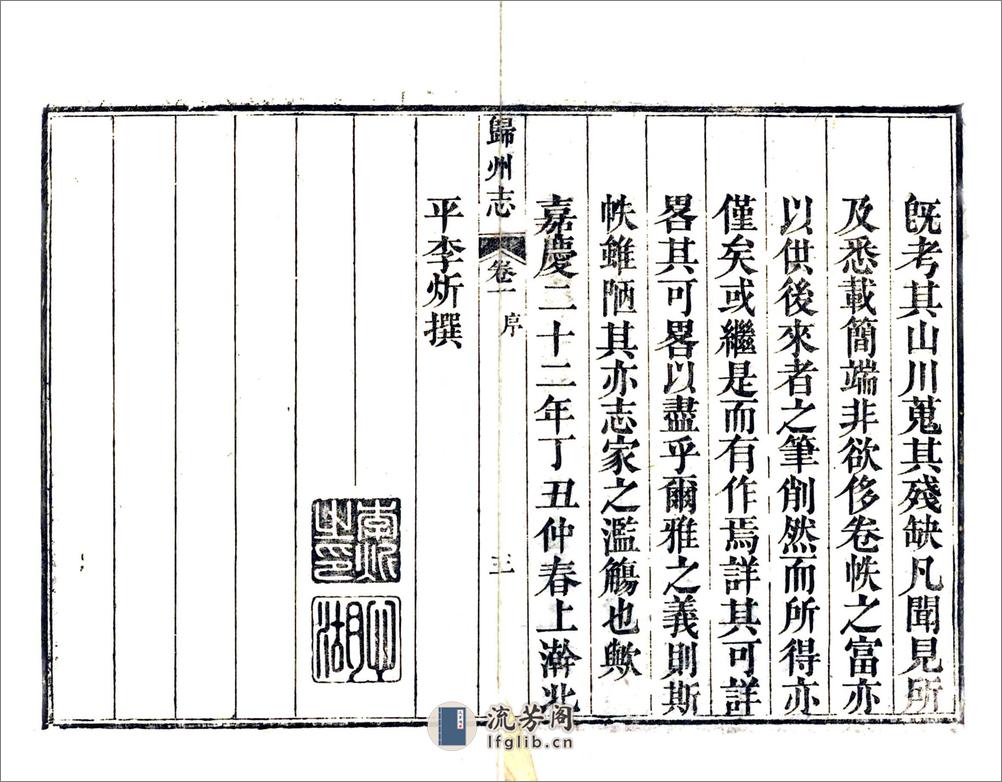 既考其山川蒐其殘缺凡聞見所
及悉載簡端非欲侈卷帙之富亦
以供後來者之筆削然而所得亦
僅矣或繼是而有作焉詳其可詳
畧其可畧以盡乎爾雅之義則斯
帙雖陋其亦志家之濫觴也歟
嘉慶二十二年丁丑仲春上澣北
歸州志
卷一 序
三
平李炘撰
李炘之印
流芳阁
lfglib.cn